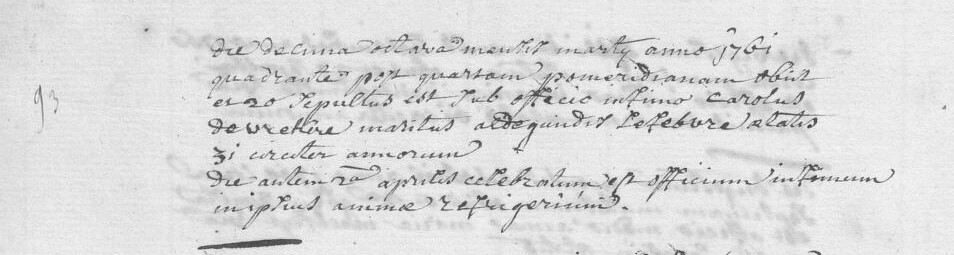 93
die decima octava mensis martij anno 1761
quadrante post quartam pomeridianam obiit
et 20 sepultus est sub officio infimo carolus
maritus aldegundis Lefebvre ætatis
31 circiter annorum
die autem 2a aprilis celebratum est officium infimum
in ipsius animæ refrigerium.